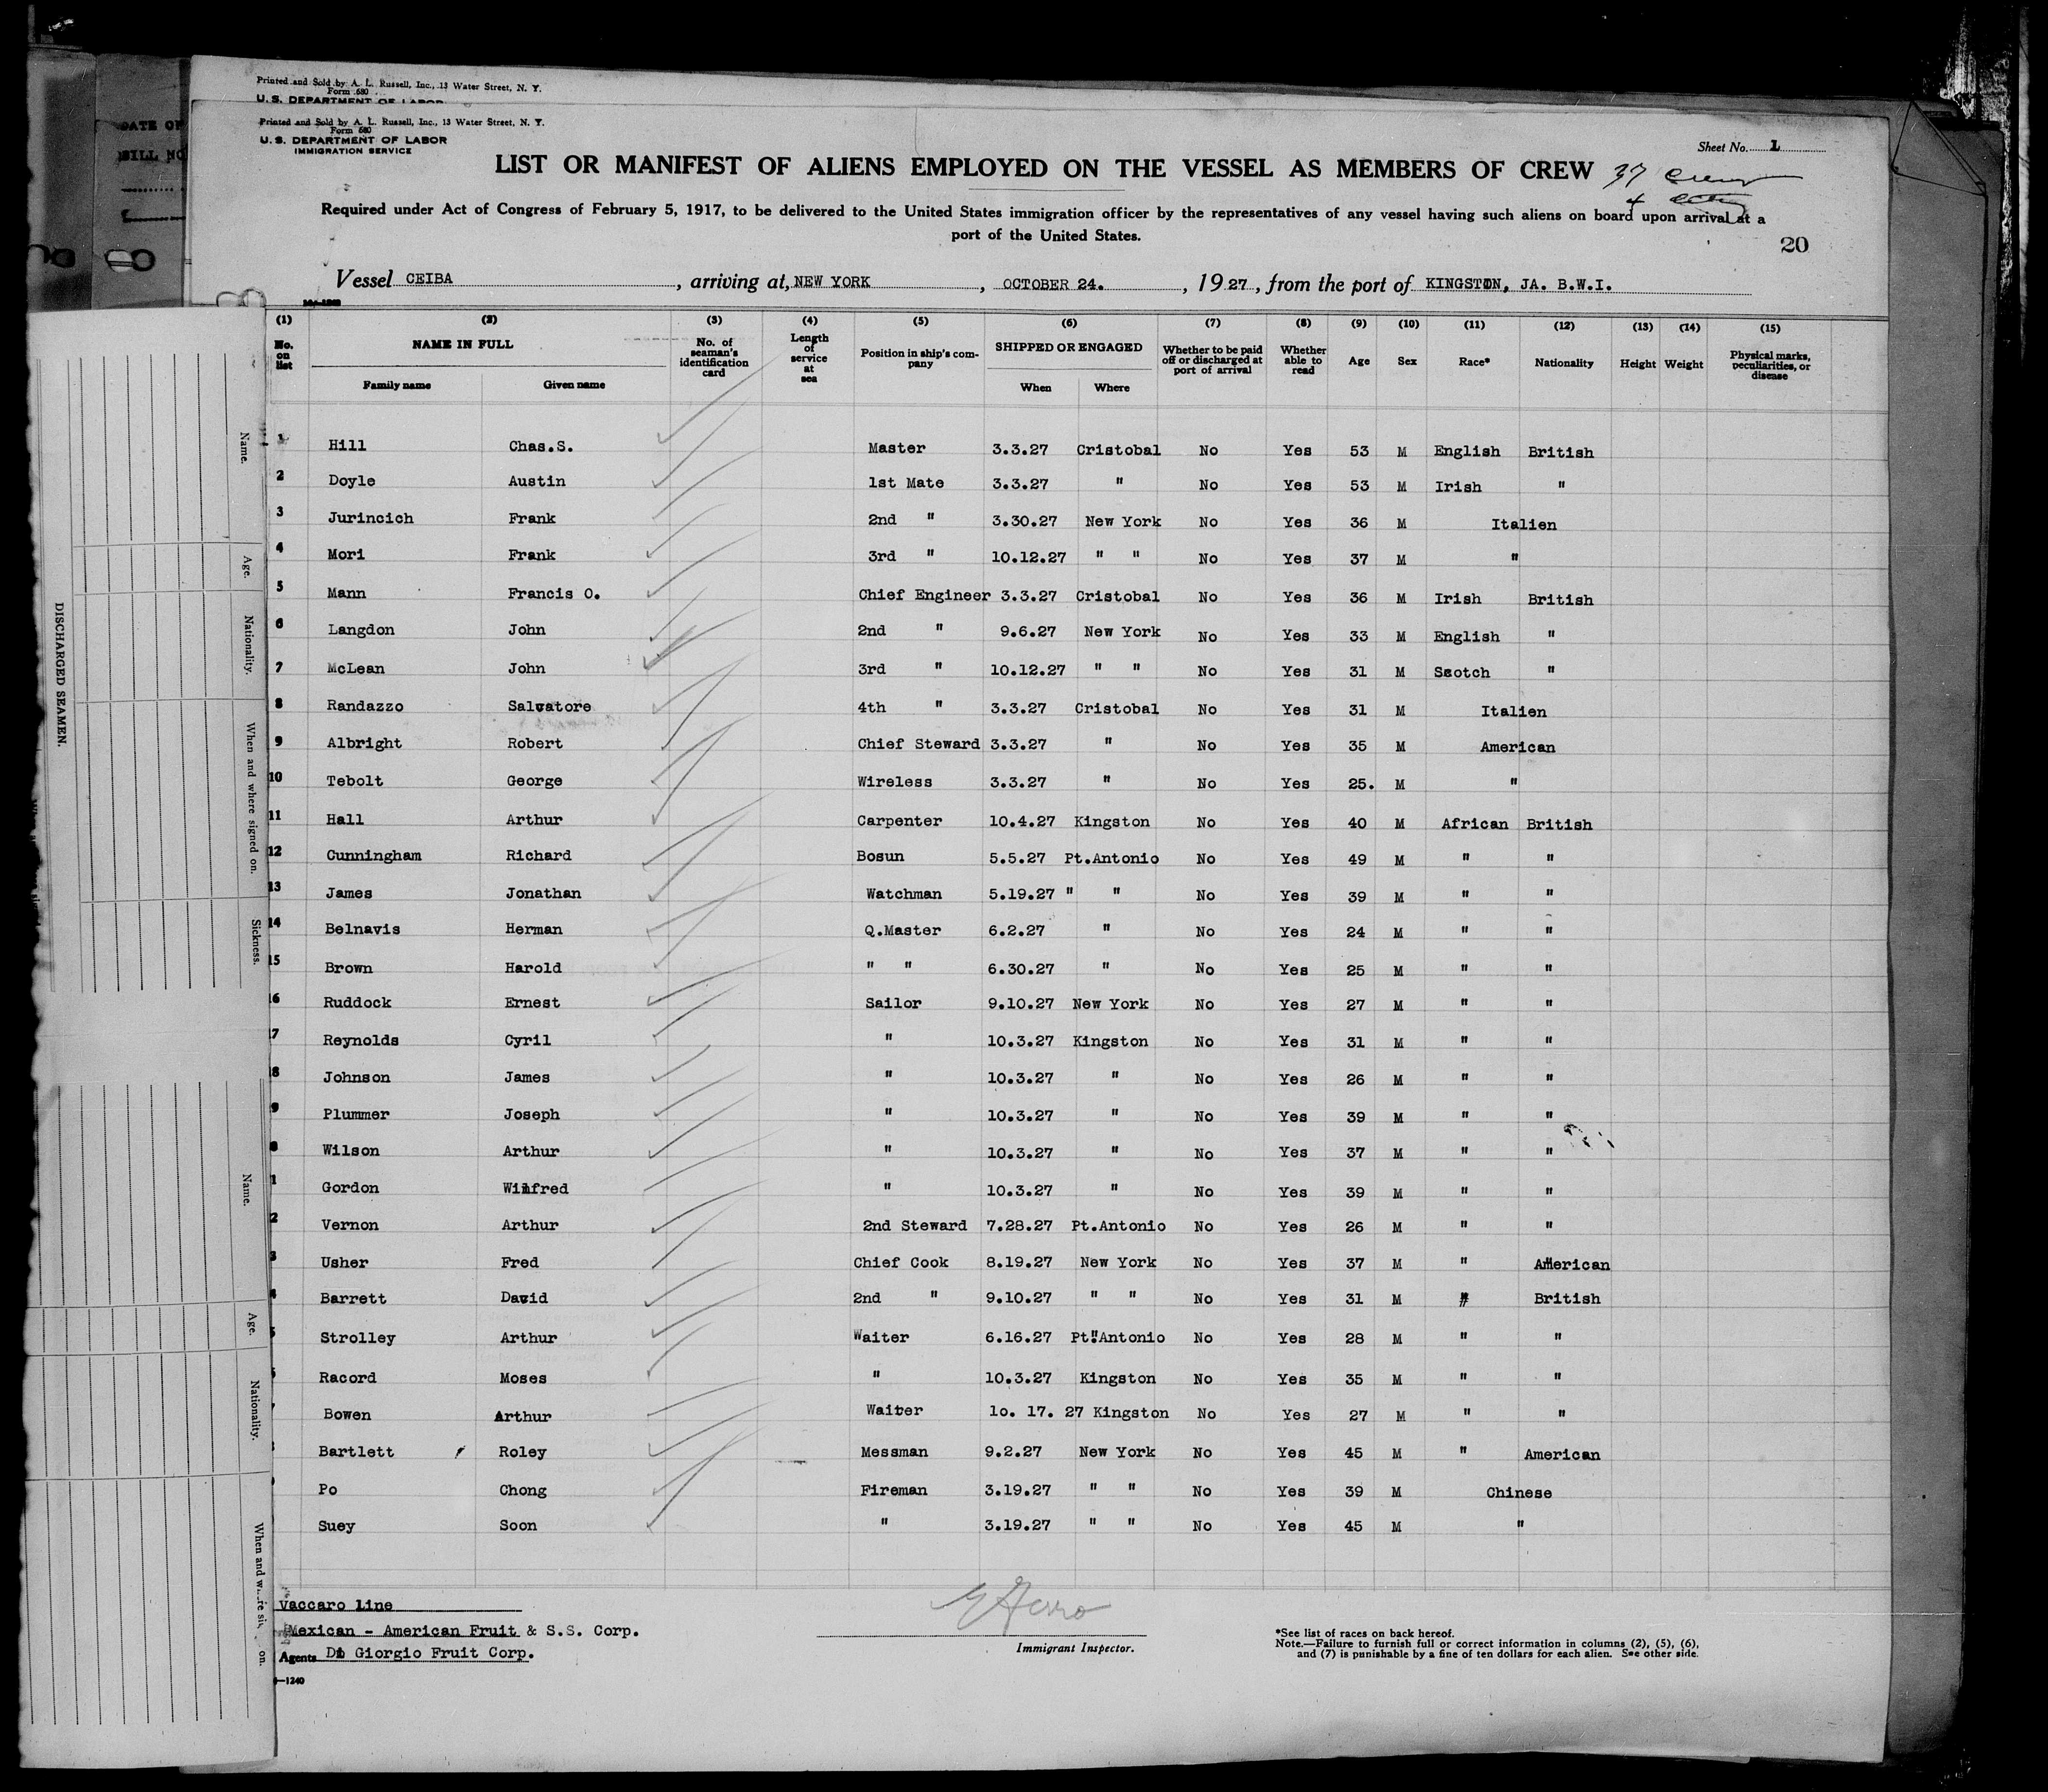 Printed and Sold by A. L. Russell, Inc., 13 Water Street, N. Y.
Form 680
U. S. DEPARTMENT OF LABOR
DATE OF
BILL NO
Printed and Sold by A. L. Russell, Inc., 13 Water Street, N. Y.
Form 680
U. S. DEPARTMENT OF LABOR
IMMIGRATION SERVICE
Sheet No. 1
LIST OR MANIFEST OF ALIENS EMPLOYED ON THE VESSEL AS MEMBERS OF CREW 37 crew
Required under Act of Congress of February 5, 1917, to be delivered to the United States immigration officer by the representatives of any vessel having such aliens on board upon arrival at a
port of the United States.
20
Vessel CEIBA, arriving at, NEW YORK, OCTOBER 24., 1927, from the port of KINGSTON, JA. B.W.I.
(1) (2) (3) (4) (5) (6) (7) (8) (9) (10) (11) (12) (13) (14) (15)
No. on list NAME IN FULL Family name Given name No. of seaman's identification card Length of service at sea Position in ship's company SHIPPED OR ENGAGED When Where Whether to be paid off or discharged at port of arrival Whether able to read Age Sex Race* Nationality Height Weight Physical marks, peculiarities, or disease
1 Hill Chas.S. Master 3.3.27 Cristobal No Yes 53 M English British
2 Doyle Austin 1st Mate 3.3.27 " No Yes 53 M Irish "
3 Jurincich Frank 2nd " 3.30.27 New York No Yes 36 M Italien
4 Mori Frank 3rd " 10.12.27 " " No Yes 37 M "
5 Mann Francis O. Chief Engineer 3.3.27 Cristobal No Yes 36 M Irish British
6 Langdon John 2nd " 9.6.27 New York No Yes 33 M English "
7 McLean John 3rd " 10.12.27 " " No Yes 31 M Scotch "
8 Randazzo Salvatore 4th " 3.3.27 Cristobal No Yes 31 M Italien
9 Albright Robert Chief Steward 3.3.27 " No Yes 35 M American
10 Tebolt George Wireless 3.3.27 " No Yes 25. M "
11 Hall Arthur Carpenter 10.4.27 Kingston No Yes 40 M African British
12 Cunningham Richard Bosun 5.5.27 Pt.Antonio No Yes 49 M " "
13 James Jonathan Watchman 5.19.27 " " No Yes 39 M " "
14 Belnavis Herman Q.Master 6.2.27 " No Yes 24 M " "
15 Brown Harold " " 6.30.27 " No Yes 25 M " "
6 Ruddock Ernest Sailor 9.10.27 New York No Yes 27 M " "
7 Reynolds Cyril " 10.3.27 Kingston No Yes 31 M " "
8 Johnson James " 10.3.27 " No Yes 26 M " "
9 Plummer Joseph " 10.3.27 " No Yes 39 M " "
0 Wilson Arthur " 10.3.27 " No Yes 37 M " "
1 Gordon Winfred " 10.3.27 " No Yes 39 M " "
2 Vernon Arthur 2nd Steward 7.28.27 Pt.Antonio No Yes 26 M " "
3 Usher Fred Chief Cook 8.19.27 New York No Yes 37 M " American
4 Barrett David 2nd " 9.10.27 " " No Yes 31 M " British
5 Strolley Arthur Waiter 6.16.27 Pt.Antonio No Yes 28 M " "
Racord Moses " 10.3.27 Kingston No Yes 35 M " "
Bowen Arthur Waiter 10. 17. 27 Kingston No Yes 27 M " "
Bartlett Roley Messman 9.2.27 New York No Yes 45 M " American
Po Chong Fireman 3.19.27 " " No Yes 39 M Chinese
Suey Soon " 3.19.27 " " No Yes 45 M "
Vaccaro line
Mexican - American Fruit & S.S. Corp.
Agents Di Giorgio Fruit Corp.
—1240
Immigrant Inspector.
*See list of races on back hereof.
Note.—Failure to furnish full or correct information in columns (2), (5), (6),
and (7) is punishable by a fine of ten dollars for each alien. See other side.
DISCHARGED SEAMEN.
Name.
Age.
Nationality.
When and where signed on.
Sickness.
Name.
Age.
Nationality.
When and where signed on.